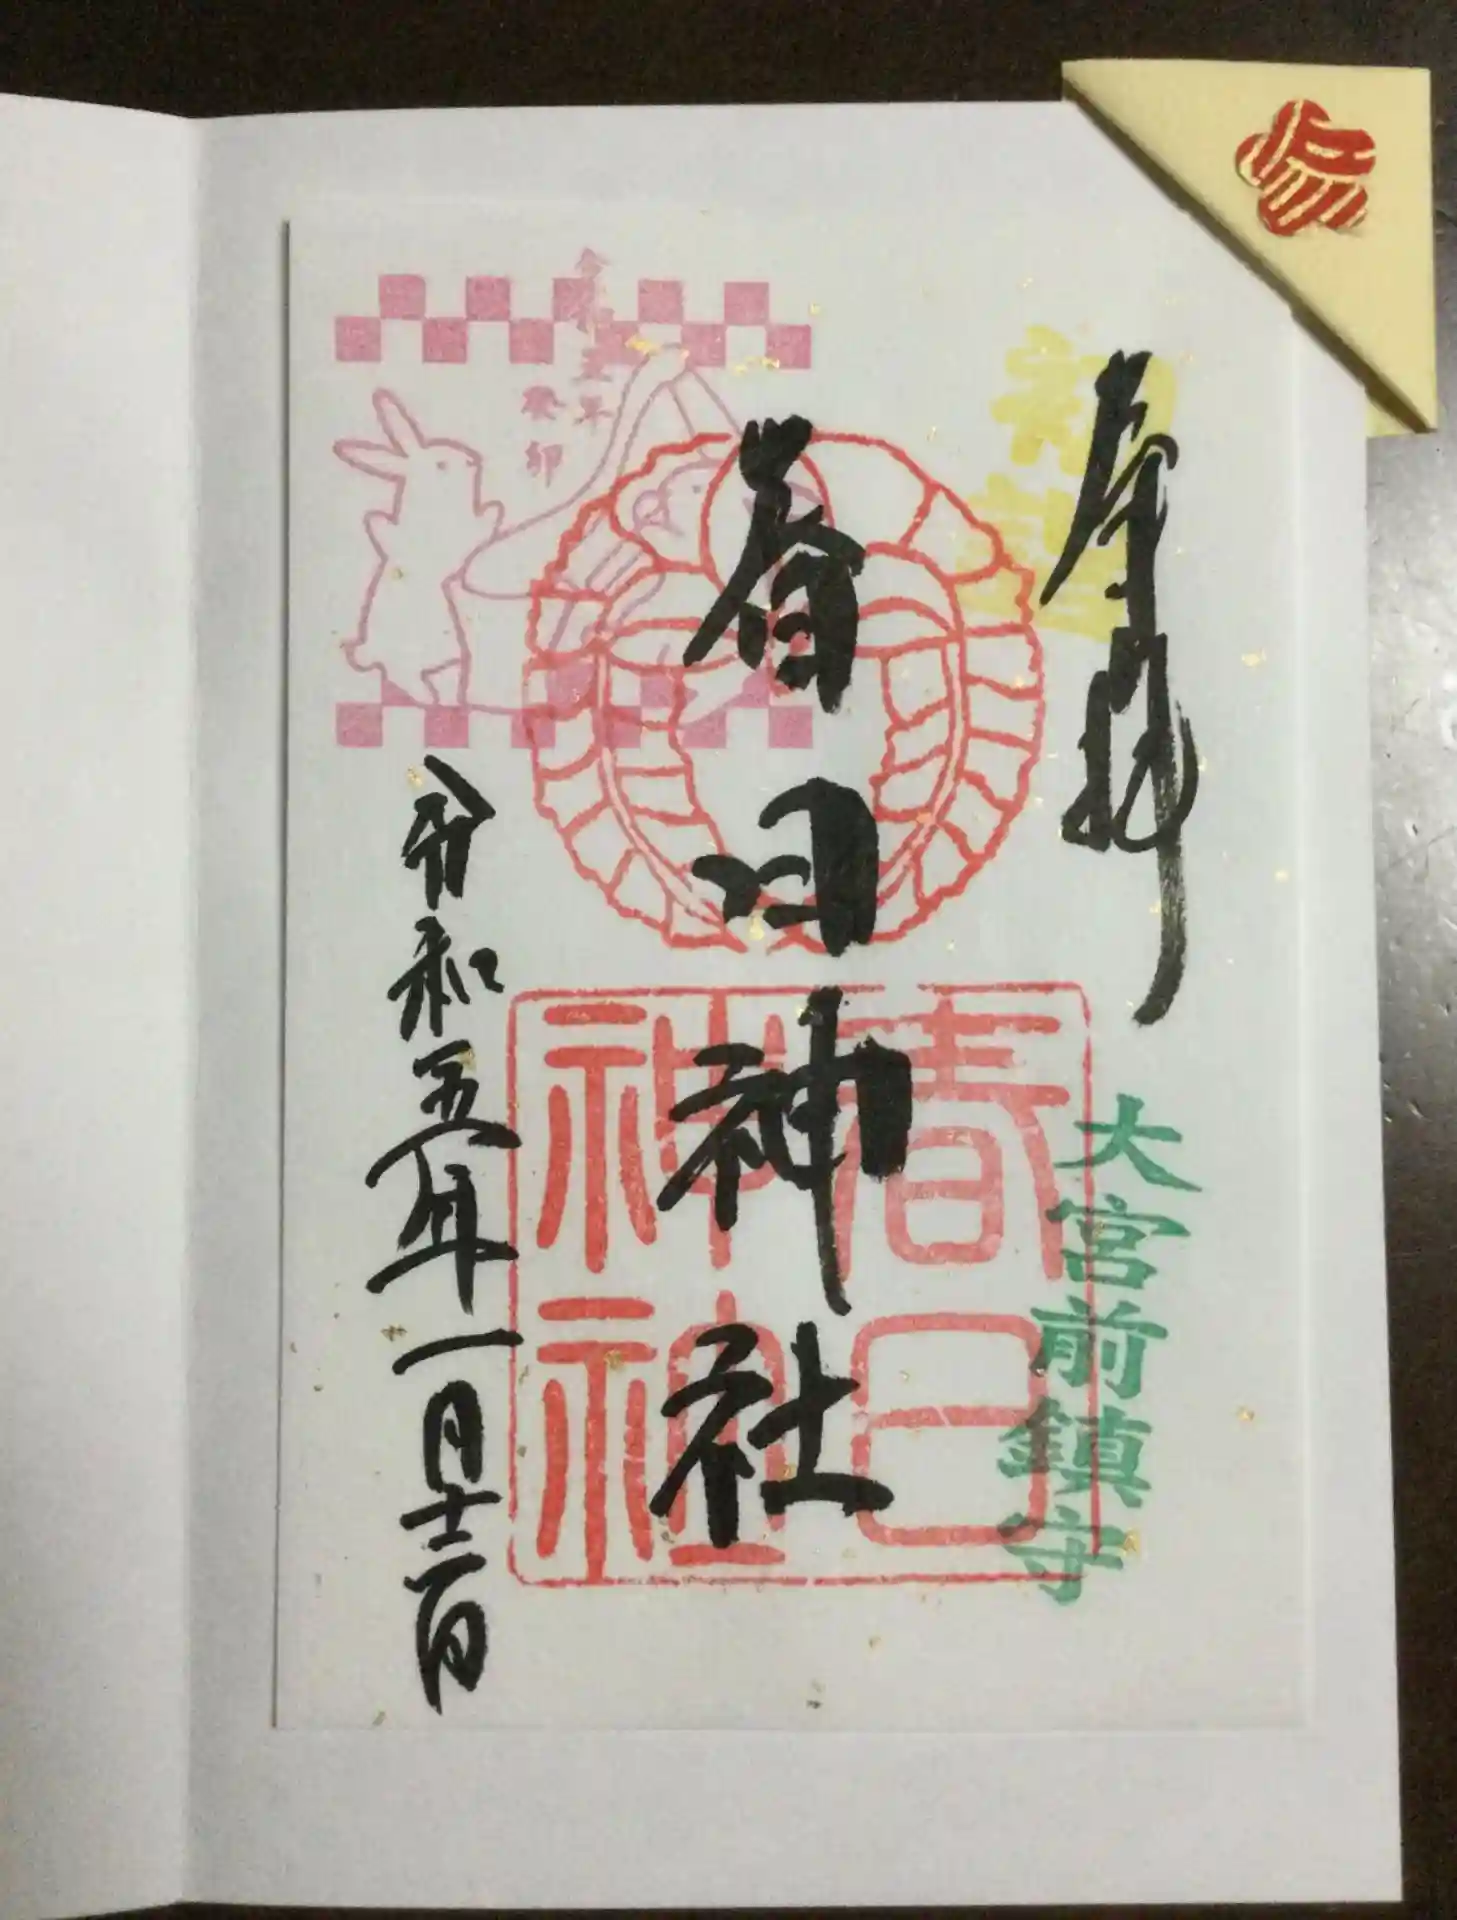 奉拝
初詣
大宮前鎮守
春日神社
春日
神社
令和五年
癸卯
令和五年一月十二日